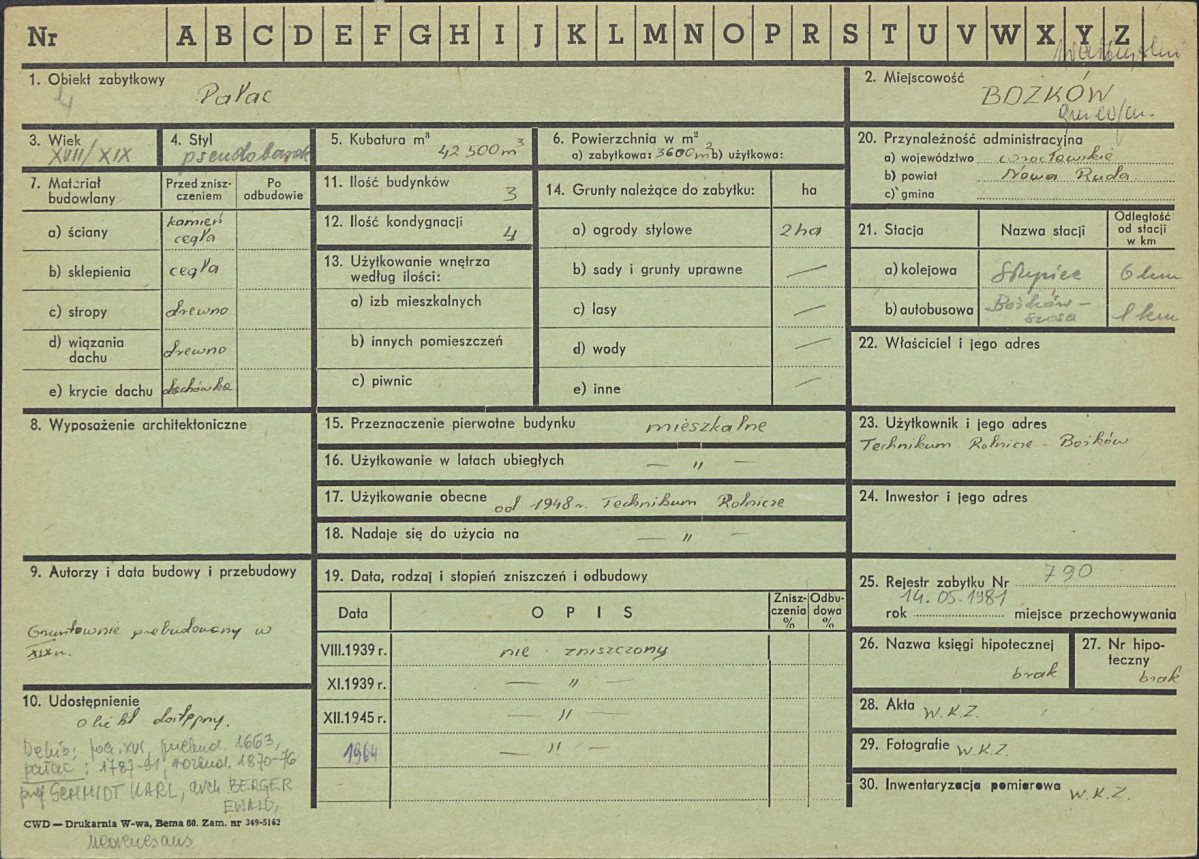 Nr A B C D E F G H I J K L M N O P R S T U V W X Y Z
1. Obiekt zabytkowy
4 Pałac
2. Miejscowość
BOŻKÓW
3. Wiek
XVII/XIX
4. Styl
pseudobarok
5. Kubatura m³
42 500 m³
6. Powierzchnia w m²
a) zabytkowa: 3600 m² b) użytkowa:
7. Materiał budowlany
Przed zniszczeniem
Po odbudowie
a) ściany kamień cegła
b) sklepienia cegła
c) stropy drewno
d) wiązania dachu drewno
e) krycie dachu dachówka
8. Wyposażenie architektoniczne
9. Autorzy i data budowy i przebudowy
Gruntownie przebudowany w
XIX w.
10. Udostępnienie
obiekt dostępny.
Dehio: poł. XVI, przebud. 1663,
pałac: 1787-91, rozbud. 1870-76
proj SCHMIDT KARL, arch BERGER
EWALD,
CWD — Drukarnia W-wa, Bema 60. Zam. nr 349-5162
neorenesans
11. Ilość budynków 3
12. Ilość kondygnacji 4
13. Użytkowanie wnętrza
według ilości:
a) izb mieszkalnych
b) innych pomieszczeń
c) piwnic
14. Grunty należące do zabytku: ha
a) ogrody stylowe 2 ha
b) sady i grunty uprawne —
c) lasy —
d) wody —
e) inne —
15. Przeznaczenie pierwotne budynku mieszkalne
16. Użytkowanie w latach ubiegłych — " —
17. Użytkowanie obecne od 1948 r. Technikum Rolnicze
18. Nadaje się do użycia na — " —
19. Data, rodzaj i stopień zniszczeń i odbudowy
Data OPIS Zniszczenia % Odbudowa %
VIII.1939 r. nie zniszczony
XI.1939 r. — " —
XII.1945 r. — " —
1964 — " —
20. Przynależność administracyjna
a) województwo wrocławskie
b) powiat Nowa Ruda
c) gmina
21. Stacja Nazwa stacji Odległość od stacji w km
a) kolejowa Słupiec 6 km
b) autobusowa Bożków - szosa 1 km
22. Właściciel i jego adres
23. Użytkownik i jego adres
Technikum Rolnicze - Bożków
24. Inwestor i jego adres
25. Rejestr zabytku Nr 790
14.05.1981
rok miejsce przechowywania
26. Nazwa księgi hipotecznej
brak
27. Nr hipoteczny
brak
28. Akta W.K.Z.
29. Fotografie W.K.Z.
30. Inwentaryzacja pomiarowa W.K.Z.